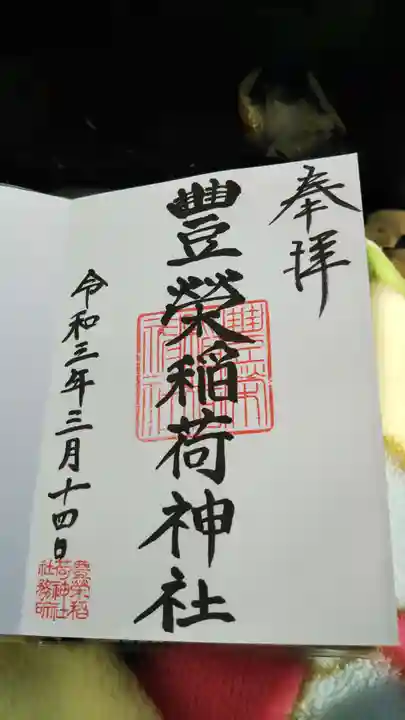 奉拝
豊榮稲荷神社
令和三年三月十四日
豊榮稲
荷神社
社務所